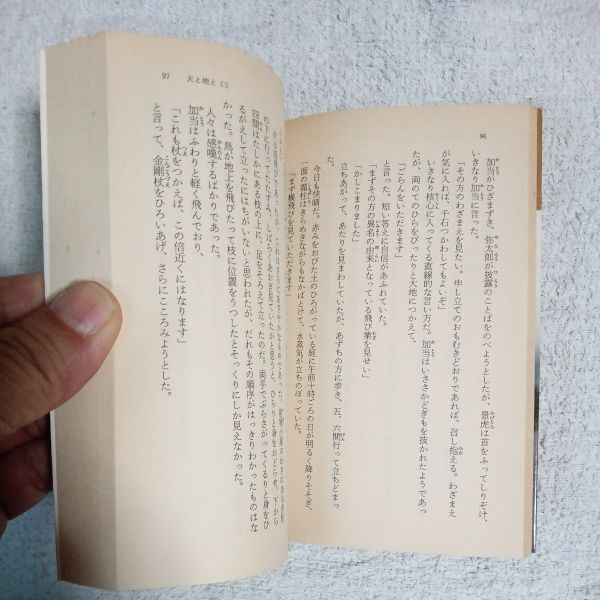 96
加当がひざまずき、弥太郎が披露のことばをのべようとしたが、景虎は首をふってしりぞけ、
いきなり加当に言った。
「その方のわざまえを見たい。申し立てのおもむきどおりであれば、召し抱える。わざまえ
が気に入れば、千石つかわしてもよいぞ」
いきなり核心に入ってくる直線的な言い方だ。加当はいささかどぎもを抜かれたようであっ
たが、両のてのひらをぴったりと大地につかえて、
「ごらんをいただきます」
と言った。短い答えに自信があふれていた。
「まずその方の異名の由来となっている飛び業を見せい」
「かしこまりました」
立ちあがって、あたりを見まわしていたが、あずちの方に歩き、五、六間行って立ちどまっ
た。
今日も快晴だ。赤みをおびた土のひろがっている庭に午前十時ごろの日が明るく降りそそぎ、
一面の霜柱はきらめきながらもなかばとけて、水蒸気が立ちのぼっていた。
「まず横飛びを見ていただきます」
97 天と地と (三)
の上に行ってたたずみ、しばらくあおぎ見ていたかと思うと、ひらりと身をおどらせ、下から
四間はたしかにある枝の上に、足をそろえて立ったのだ。両手でぶらさがってくるりと身をひ
るがえして立ったにはちがいないと思われたが、だれもその順序がはっきりわかったものはな
かった。鳥が地上を飛びたって枝に位置をうつしたとそっくりにしか見えなかった。
人々は感嘆するばかりであった。
加当はふわりと軽く飛んでおり、
「これも杖をつかえば、この倍近くにはなります」
と言って、金剛杖をひろいあげ、さらにこころみようとした。